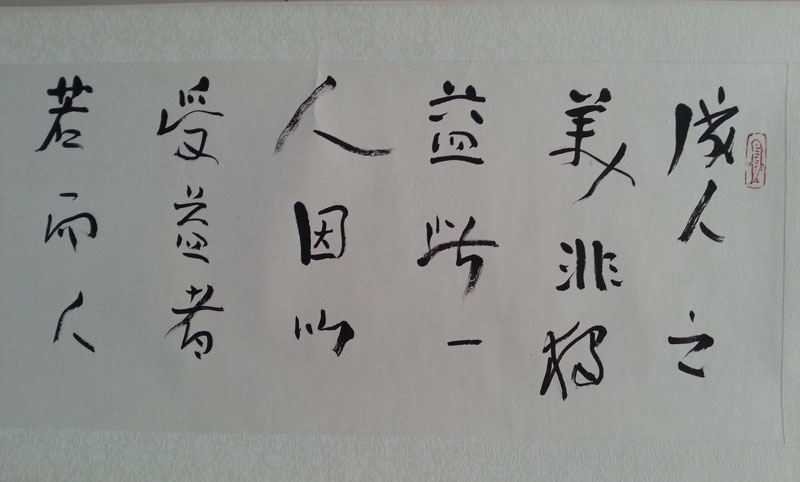 成人之
美非獨
益此一
人因以
受益者
若而人